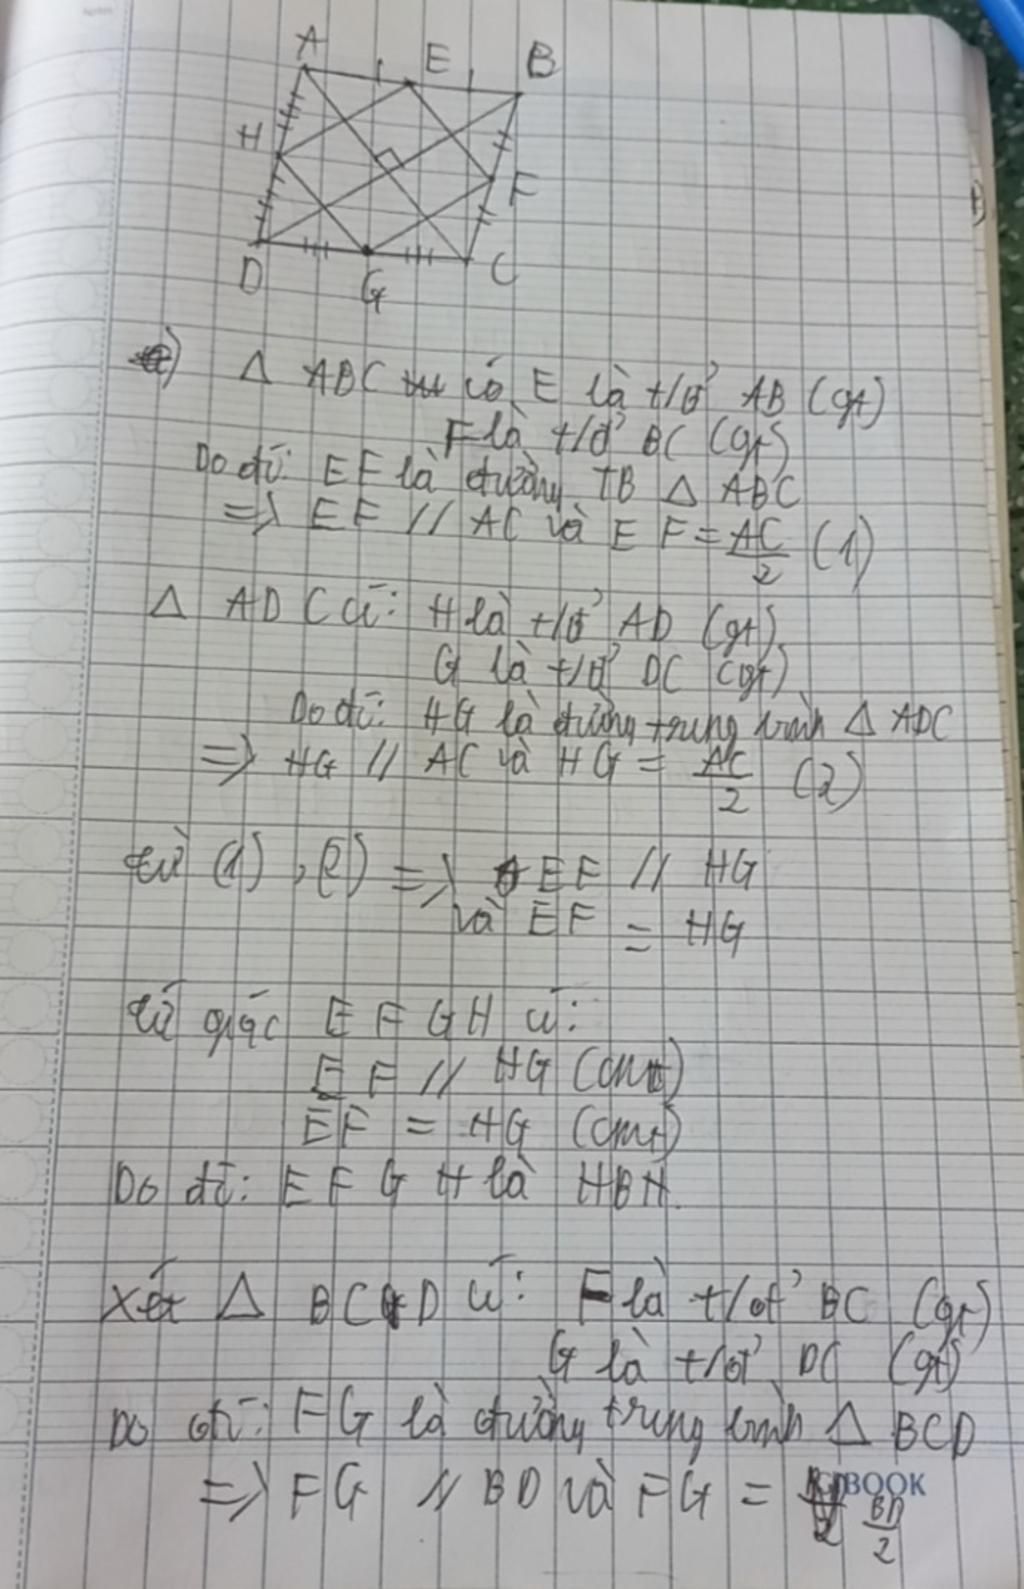 A E B
H
F
D G C
a) Δ ABC có E là t/đ' AB (gt)
F là t/đ' BC (gt)
Do đó: EF là đường TB Δ ABC
=> EF // AC và EF = AC/2 (1)
Δ ADC có: H là t/đ' AD (gt)
G là t/đ' DC (gt)
Do đó: HG là đường trung bình Δ ADC
=> HG // AC và HG = AC/2 (2)
từ (1), (2) => EF // HG
và EF = HG
tứ giác EFGH có:
EF // HG (cmt)
EF = HG (cmt)
Do đó: EFGH là HBH.
Xét Δ BCD có: F là t/đ' BC (gt)
G là t/đ' DC (gt)
Do đó: FG là đường trung bình Δ BCD
=> FG // BD và FG = BD/2
BOOK